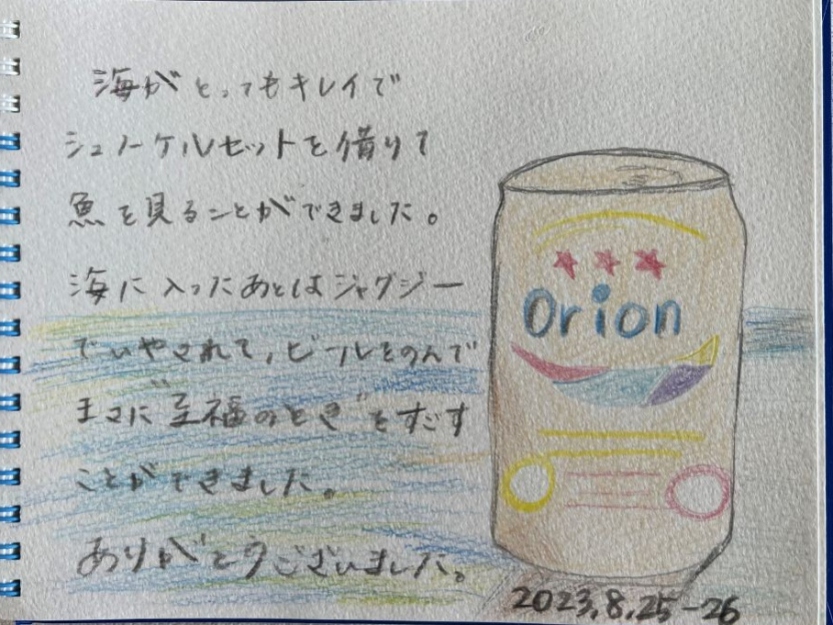 海がとってもキレイで
シュノーケルセットを借りて
魚を見ることができました。
海に入ったあとはジャグジー
でいやされて,ビールをのんで
まさに"至福のとき"をすごす
ことができました。
ありがとうございました。
Orion
2023.8.25-26